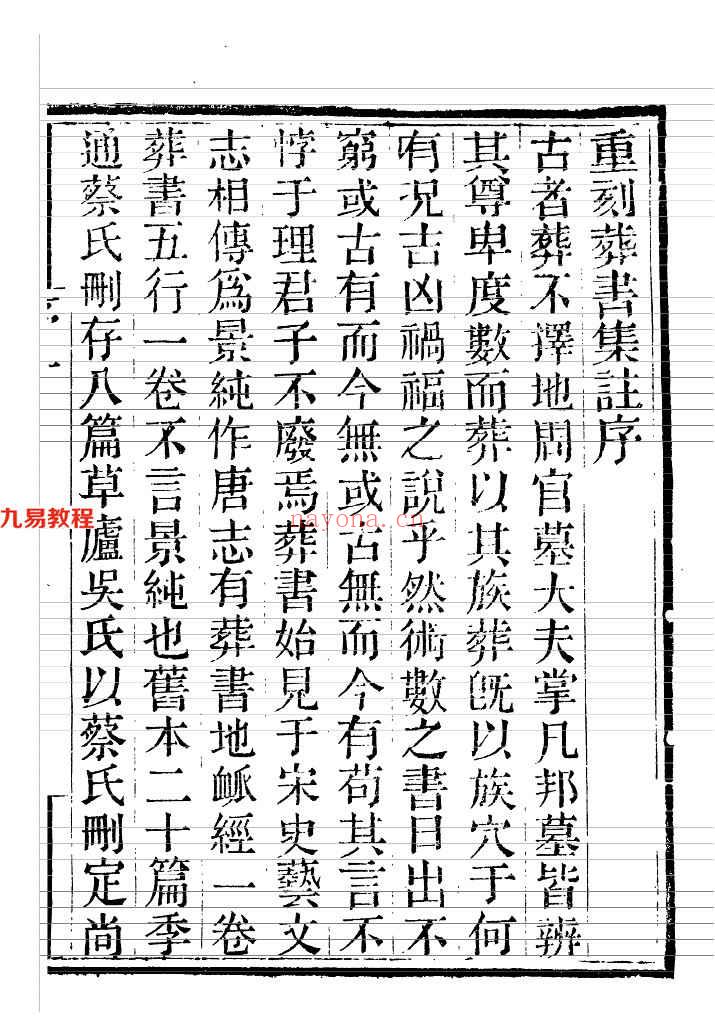 重刻葬書集註序
古者葬不擇地周官墓大夫掌凡邦墓皆辨
其尊卑度數而葬以其族葬旣以族穴于何
有况吉凶禍福之說乎然術數之書日出不
窮或古有而今無或古無而今有苟其言不
悖于理君子不廢焉葬書始見于宋史藝文
志相傳爲景純作唐志有葬書地衇經一卷
葬書五行一卷不言景純也舊本二十篇季
通蔡氏刪存八篇草廬吳氏以蔡氏刪定尚
九易教程
nayona.cn